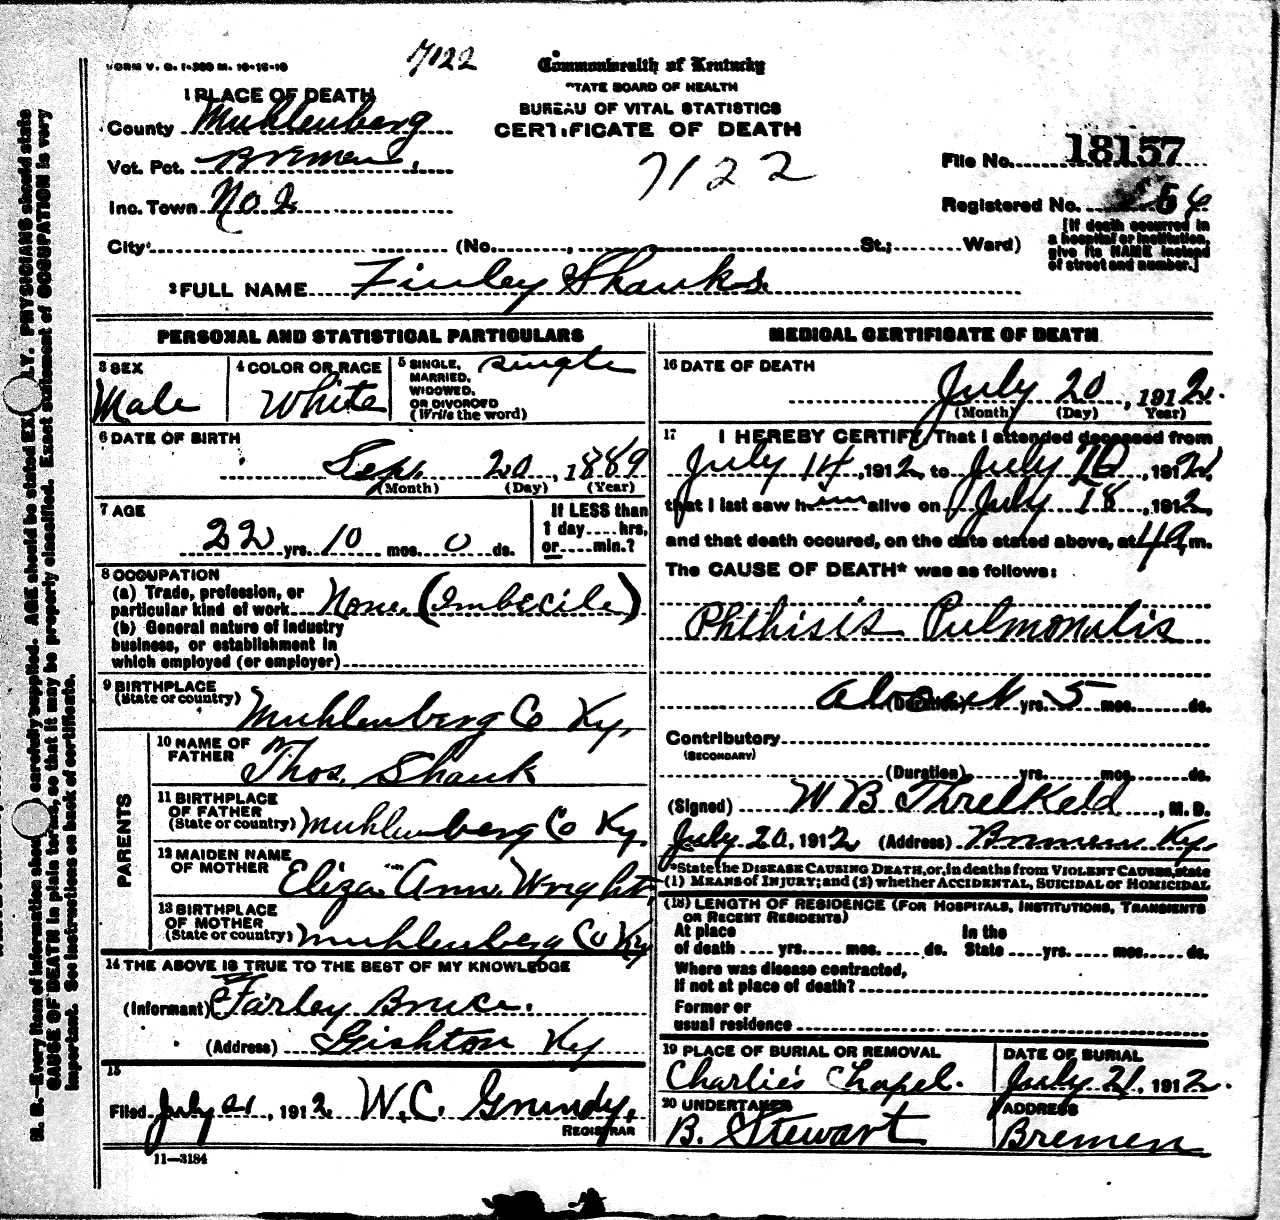 FORM V. S. 1-300 M. 10-16-10
7122
Commonwealth of Kentucky
STATE BOARD OF HEALTH
BUREAU OF VITAL STATISTICS
CERTIFICATE OF DEATH
7122
1 PLACE OF DEATH
County Muhlenberg
Vot. Pct. Bremen,
Inc. Town No 2
City (No. , St.; Ward)
File No. 18157
Registered No. 56
[If death occurred in a hospital or institution, give its NAME instead of street and number.]
2 FULL NAME Finley Shanks.
PERSONAL AND STATISTICAL PARTICULARS
3 SEX
Male
4 COLOR OR RACE
White
5 SINGLE, MARRIED, WIDOWED, OR DIVORCED (Write the word)
single
6 DATE OF BIRTH
Sept. 20, 1889
(Month) (Day) (Year)
7 AGE
22 yrs. 10 mos. 0 ds.
If LESS than 1 day.....hrs, or.....min.?
8 OCCUPATION
(a) Trade, profession, or particular kind of work None. (Imbecile)
(b) General nature of industry business, or establishment in which employed (or employer)
9 BIRTHPLACE
(State or country) Muhlenberg Co Ky,
PARENTS
10 NAME OF FATHER Thos. Shank
11 BIRTHPLACE OF FATHER (State or country) Muhlenberg Co Ky.
12 MAIDEN NAME OF MOTHER Eliza Ann Wright,
13 BIRTHPLACE OF MOTHER (State or country) Muhlenberg Co Ky
14 THE ABOVE IS TRUE TO THE BEST OF MY KNOWLEDGE
(Informant) Farley Bruce.
(Address) Gishton Ky
15
Filed July 21, 1912 W.C. Grundy,
REGISTRAR
11—3184
MEDICAL CERTIFICATE OF DEATH
16 DATE OF DEATH
July 20, 1912.
(Month) (Day) (Year)
17 I HEREBY CERTIFY, That I attended deceased from
July 14, 1912, to July 20, 1912,
that I last saw him alive on July 18, 1912,
and that death occured, on the date stated above, at 4 a, m.
The CAUSE OF DEATH* was as follows:
Phthisis Pulmonalis
about (Duration) yrs. 5 mos. ds.
Contributory
(SECONDARY)
(Duration) yrs. mos. ds.
(Signed) W B Threlkeld, M. D.
July 20, 1912 (Address) Bremen Ky.
*State the DISEASE CAUSING DEATH, or, in deaths from VIOLENT CAUSES, state
(1) MEANS of INJURY; and (2) whether ACCIDENTAL, SUICIDAL or HOMICIDAL
(18) LENGTH OF RESIDENCE (FOR HOSPITALS, INSTITUTIONS, TRANSIENTS OR RECENT RESIDENTS)
At place of death .... yrs. mos. ds. In the State yrs. mos. ds.
Where was disease contracted,
If not at place of death?
Former or
usual residence
19 PLACE OF BURIAL OR REMOVAL
Charlie's Chapel.
DATE OF BURIAL
July 21, 1912.
20 UNDERTAKER
B. Stewart
ADDRESS
Bremen
N. B.—Every item of information should be carefully supplied. AGE should be stated EXACTLY. PHYSICIANS should state
CAUSE OF DEATH in plain terms, so that it may be properly classified. Exact statement of OCCUPATION is very
important. See instructions on back of certificate.